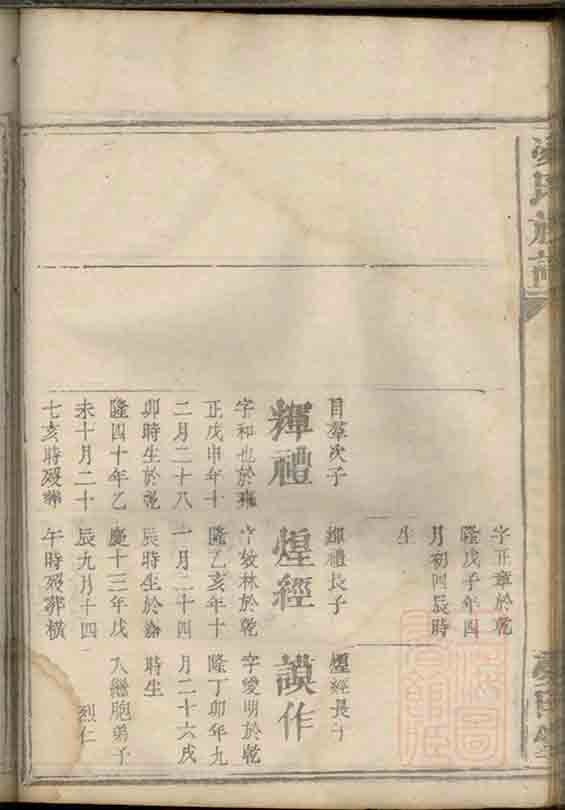 氏族譜
字正章於乾
隆戊子年四
月初四辰時
生
目羣次子
輝禮
字和也於雍
正戊申年十
二月二十八
卯時生於乾
隆四十年乙
未十月二十
七亥時歿葬
輝禮長子
煌經
字效林於乾
隆乙亥年十
一月二十四
辰時生於嘉
慶十三年戊
辰九月十四
午時歿葬橫
煌經長子
謨作
字愛明於乾
隆丁卯年九
月二十六戌
時生
入繼胞弟子
烈仁